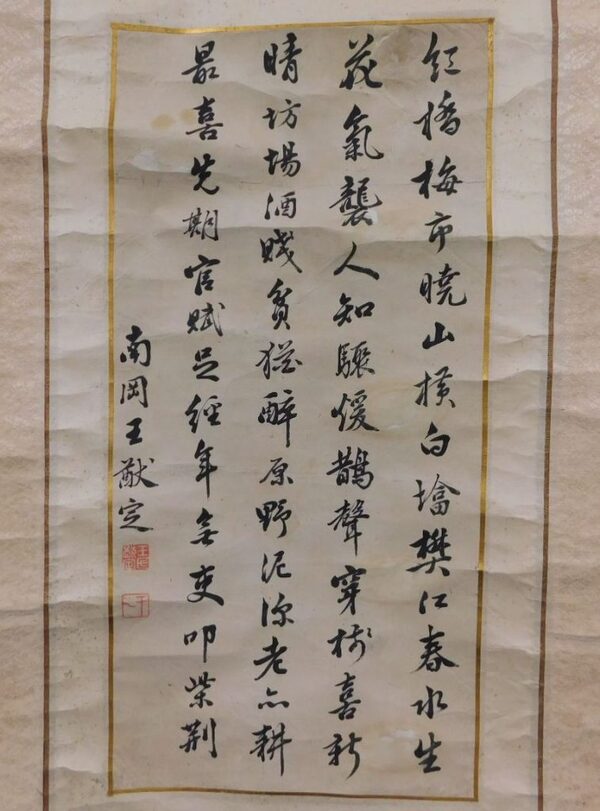 紅橋梅市曉山橫白墖樊江春水生
花氣襲人知驟煖鵲聲穿樹喜新
晴坊場酒賤貧猶醉原野泥深老亦耕
最喜先期官賦足經年無吏叩柴荆
南岡王猷定